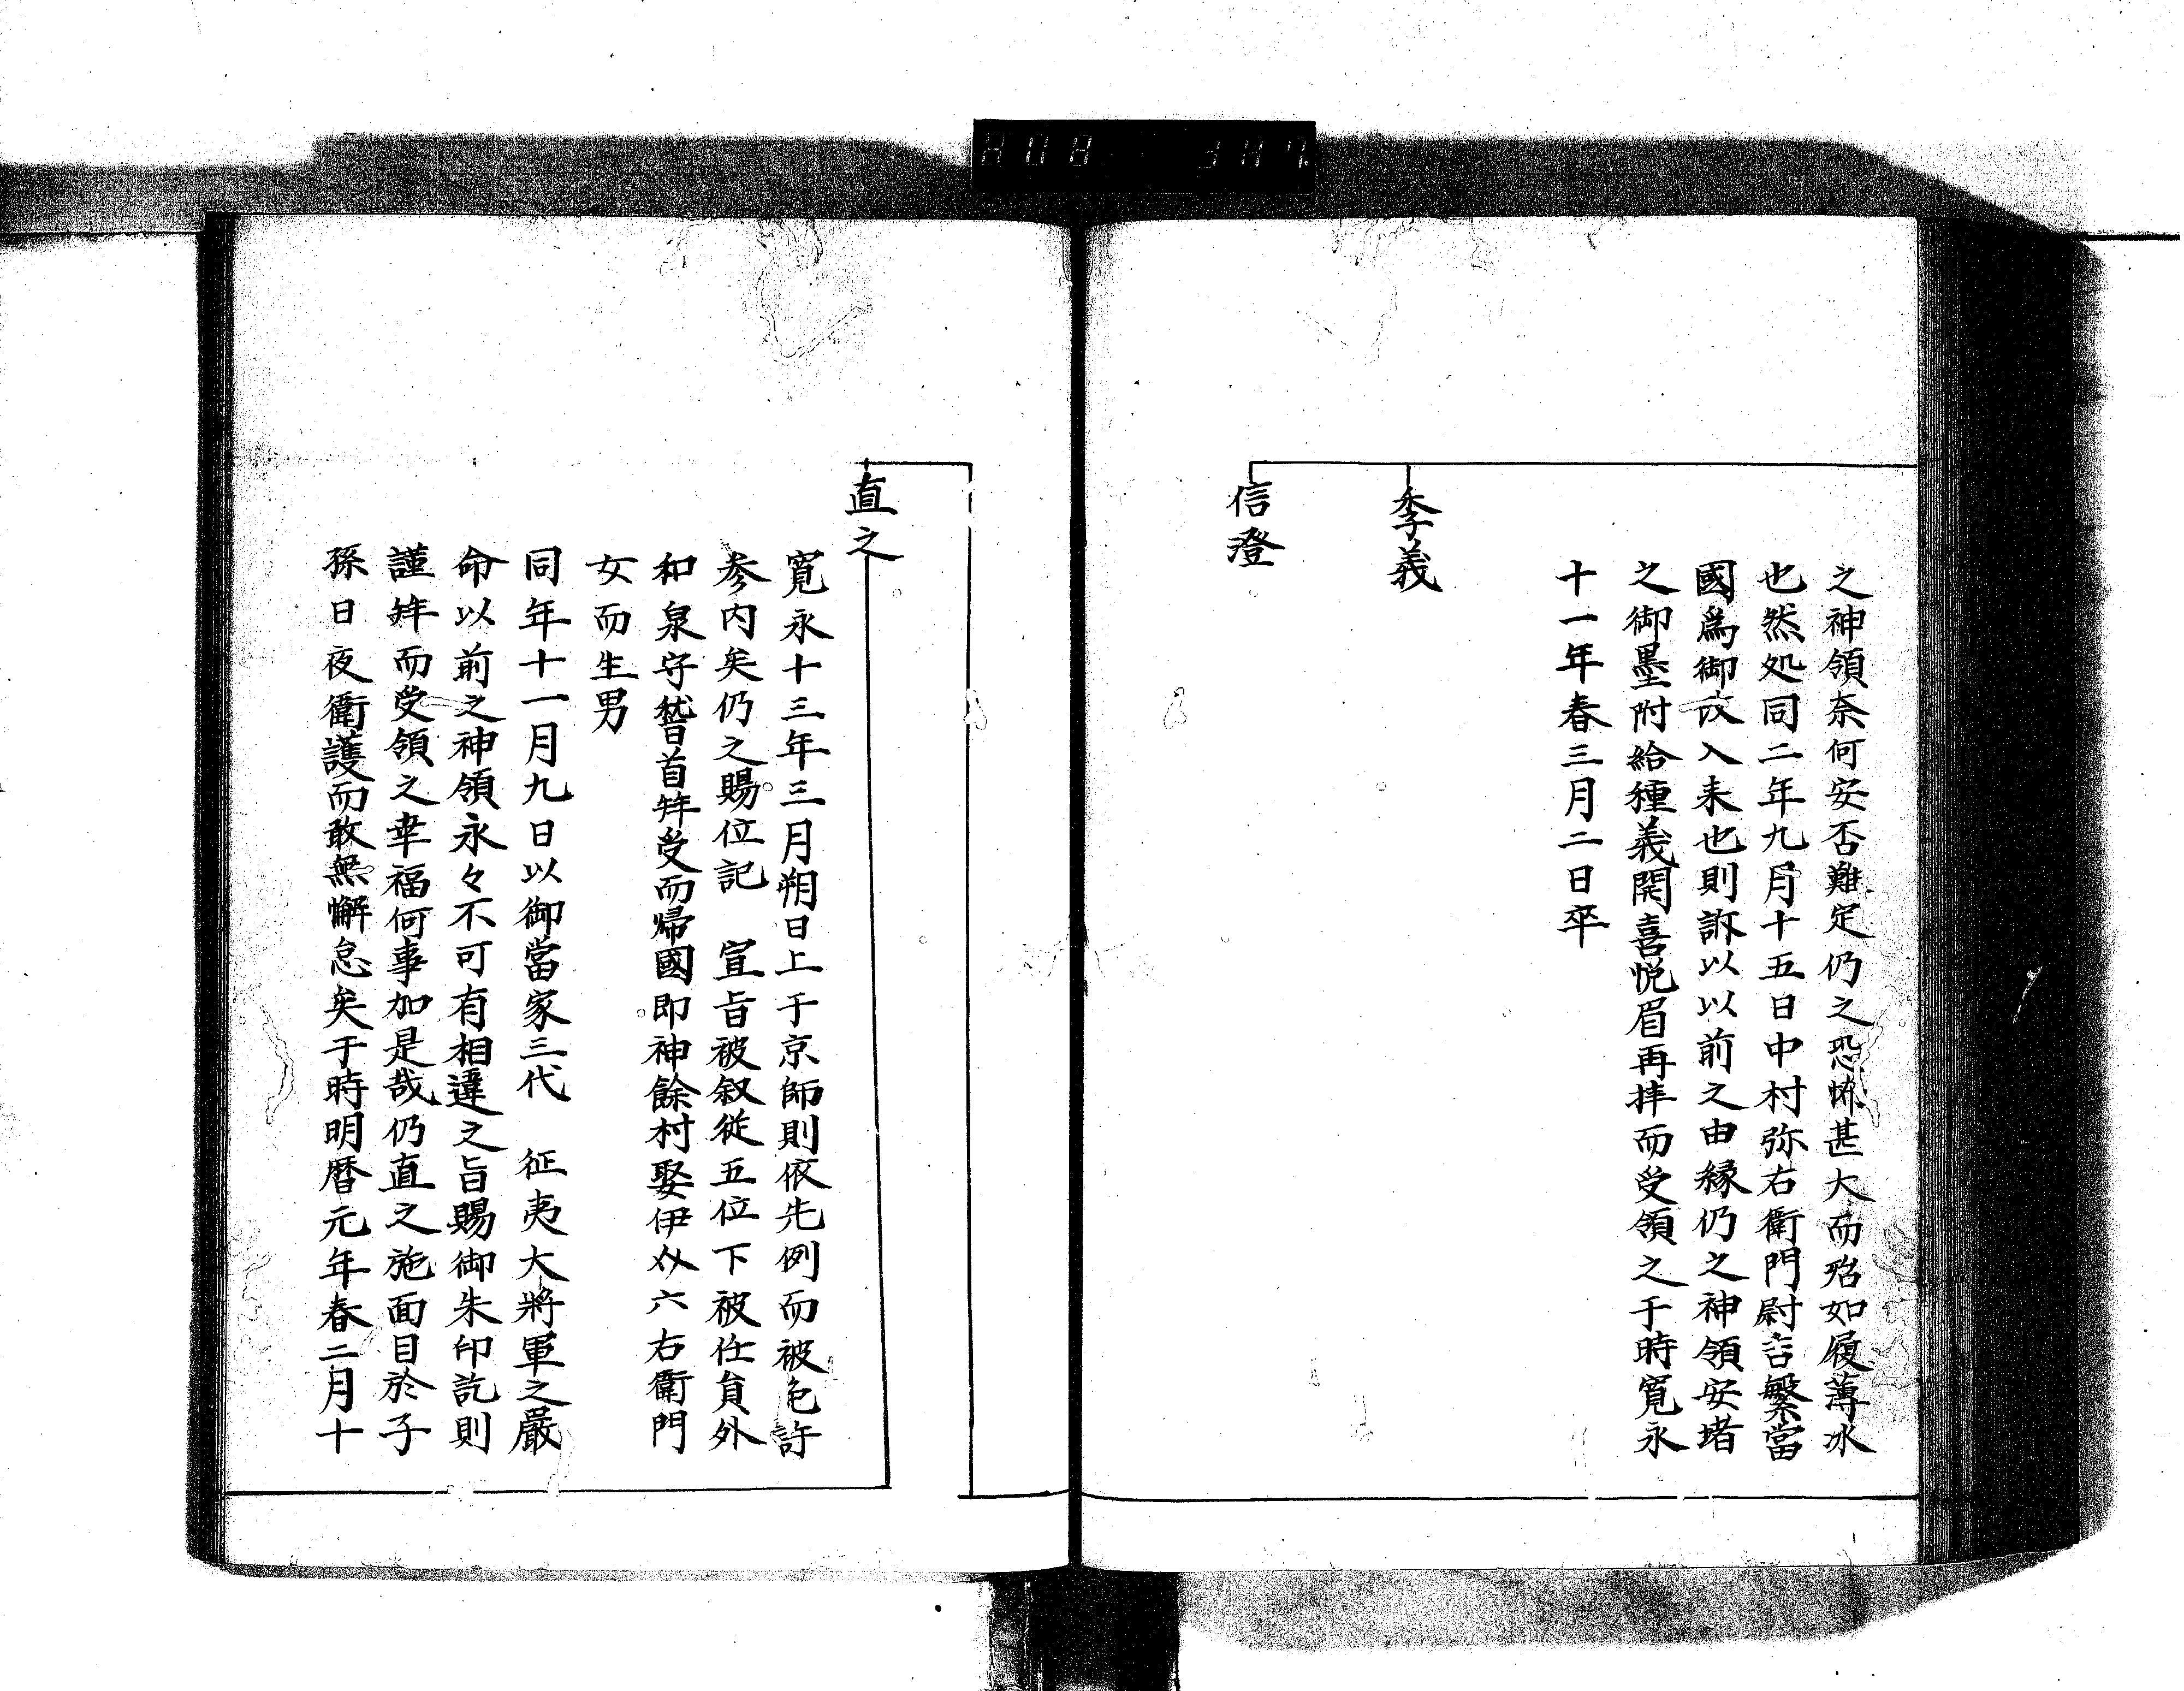 之神領奈何安否難定仍之恐怖甚大而殆如履薄冰
也然処同二年九月十五日中村弥右衛門尉吉繁當
國爲御改入来也則訴以以前之由縁仍之神領安堵
之御墨附給種義開喜悦眉再拝而受領之于時寛永
十一年春三月二日卒
季義
信澄
直之
寛永十三年三月朔日上于京師則依先例而被免許
参内矣仍之賜位記　宣旨被叙従五位下被任員外
和泉守嵆首拜受而帰國即神餘村娶伊奴六右衛門
女而生男
同年十一月九日以御當家三代　征夷大將軍之嚴
命以前之神領永々不可有相違之旨賜御朱印訖則
謹拜而受領之幸福何事加是哉仍直之施面目於子
孫日夜衛護而敢無懈怠矣于時明暦元年春二月十